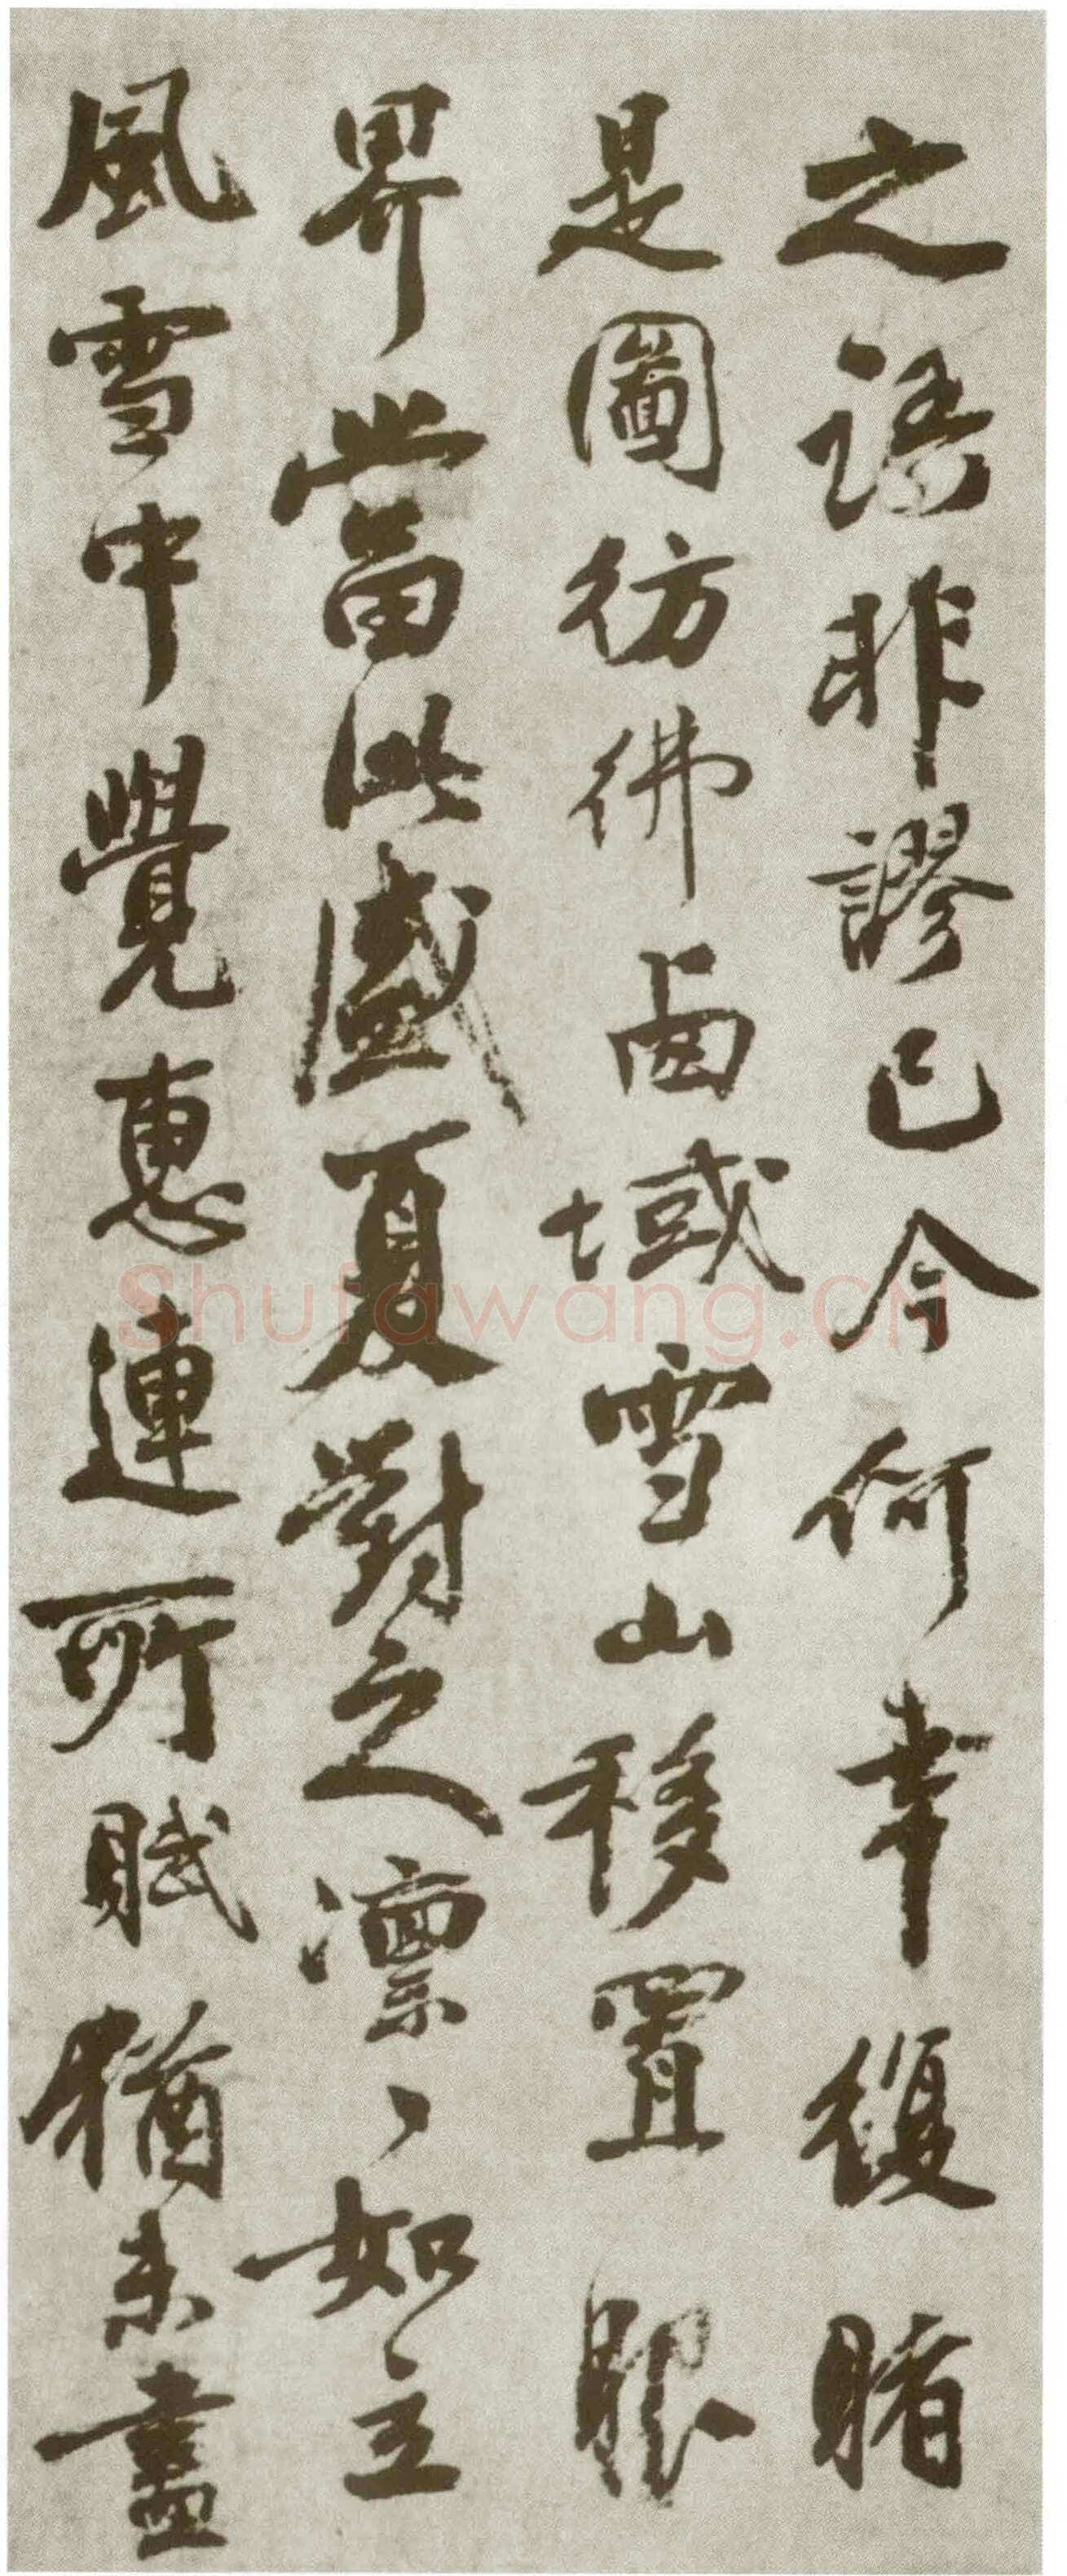 之語非謬已今何幸復睹
是圖彷彿西域雪山移置眼
界當此盛夏對之凛〻如立
風雪中覺惠連所賦猶未盡
Shufawang.CN